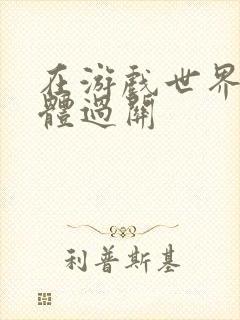 在游戲世界
體過關
利普斯基